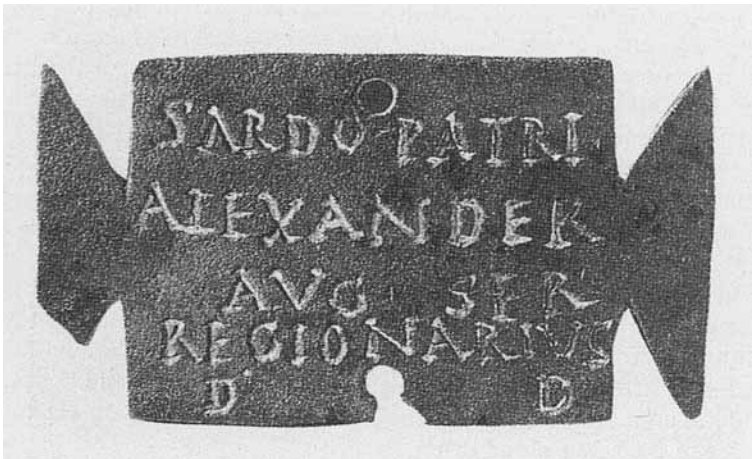 SARDO PATRI
ALEXANDER
AVG · SER
REGIONARIVS
D D